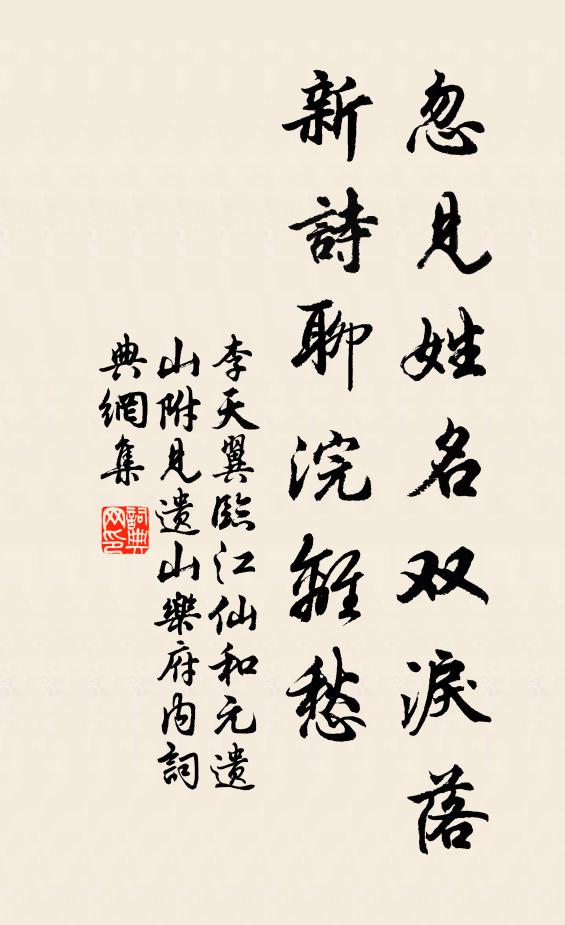 忽見姓名双淚落
新詩聊浣離愁
李天翼臨江仙和元遺
山附見遺山樂府內詞
典網集
詞典
网印